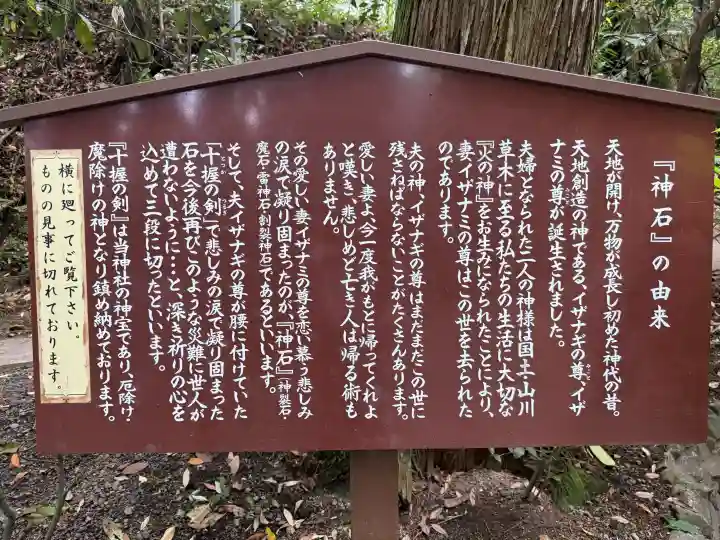 『神石』の由来
天地が開け、万物が成長し初めた神代の昔。
天地創造の神である、イザナギの尊、イザ
ナミの尊が誕生されました。
夫婦となられた二人の神様は国土・山川
草木に至る私たちの生活に大切な
『火の神』をお生みになられたことにより、
妻イザナミの尊はこの世を去られた
のであります。
夫の神、イザナギの尊はまだまだこの世に
残さねばならないことがたくさんあります。
愛しい妻よ、今一度我がもとに帰ってくれよ
と嘆き、悲しめど亡き人は帰る術も
ありません。
その愛しい妻イザナミの尊を恋い慕う悲しみ
の涙で凝り固まったのが、『神石』(神裂石・
魔石・雷神石・割裂神石)であるといいます。
そして、夫イザナギの尊が腰に付けていた
「十握の剣」で悲しみの涙で凝り固まった
石を今後再びこのような災難に世人が
遭わないように・・・と、深き祈りの心を
込めて三段に切ったといいます。
『十握の剣』は当神社の神宝であり、厄除け・
魔除けの神となり鎮め納めております。
横に廻ってご覧下さい。
ものの見事に切れております。